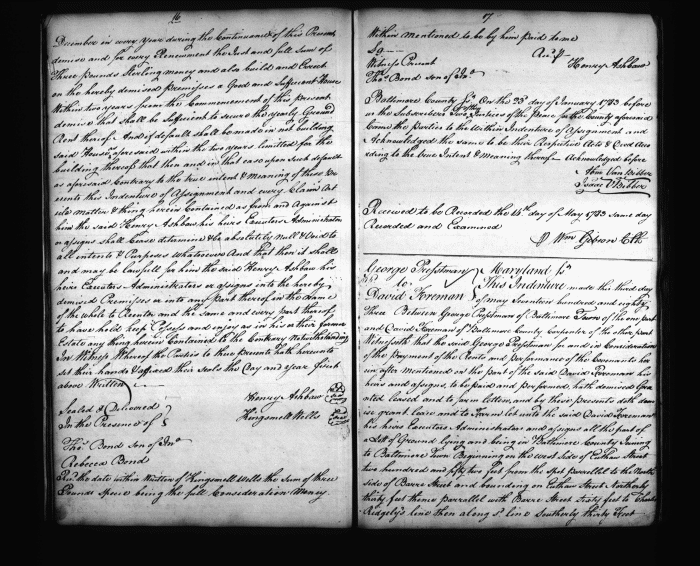 16
December in every year during the Continuance of this Present
demise and for every Renewment the Just and full Sum of
Three Pounds Sterling money and also build and Erect
on the hereby demised premisses a Good and Sufficient House
Within two years from the Commencement of this present
demise that shall be Sufficient to secure the yearly Ground
Rent thereof And if default shall be made in not building
said House aforesaid within the two years limitted for the
building thereof that then and in that case upon such default
as aforesaid Contrary to the true intent & meaning of these
this Indenture of Assignment and every Claim Art
icle matter & thing herein Contained as from and Against
him the said Henry Ashbaw his heirs Executors Administrators
or assigns shall Cease determine & be absolutely Null & Void to
all intents & Purposes whatsoever And that then it shall
and may be lawfull for him the said Henry Ashbaw his
heirs Executors Administrators or assigns into the hereby
demised Premises or into any Part thereof in the name
of the whole to Reenter and the same and every Part thereof
to have hold keep Possess and enjoy as in his or their former
Estate any thing herein Contained to the Contrary Notwithstanding
In Witness Whereof the Parties to these Presents hath hereunto
set their hands & affixed their Seals the Day and year first
above Written
Henry Ashbaw
Sealed & Delivered
Kingsmell Wells
In the Presence of
Thos. Bond Son of Jno.
Rebecca Bond
Recd. the date within Written of Kingsmell Wells the Sum of three
Pounds Specie being the full Consideration Money
17
Within Mentioned to be by him paid to me
Henry Ashbaw
Witness Present
Thos. Bond Son of Jno.
Baltimore County Sc. On the 23d. day of January 1783 before
us the Subscribers Two Justices of the Peace for the County aforesaid
Came the parties to the Within Indenture of Assignment and
Acknowledged the same to be their Respective Acts & Deed Acco
rding to the true Intent & Meaning thereof Acknowledged before
Abm. Van Bibber
Isaac V Bibber
Received to be Recorded the 14th. day of May 1783 Same day
Recorded and Examined
Wm. Gibson Clk
George Presstman
to
David Foreman
Maryland Sc.
This Indenture made the third day
of may Seventeen hundred and eighty
Three Between George Presstman of Baltimore Town of the one part
and David Foreman of Baltimore County Carpenter of the other part
Witnesseth that the said George Presstman for and in Consideration
of the Payment of the Rents and Performance of the Covenants her
ein after Mentioned on the part of the said David Foreman his
heirs and assigns, to be paid and performed, hath demised Gran
ted leased and to farm letten, and by these presents doth demi
se grant lease and to Farm let unto the said David Foreman
his heirs Executors Administrators and assigns all that part of
a Lott of Ground lying and being in Baltimore County Joining
to Baltimore Town Beginning on the West side of Eutaw Street
two hundred and fifty two feet from the Spot parrallel to the North
Side of Barre Street and bounding on Eutaw Street Northerly
thirty feet thence parrallel with Barre Street Sixty feet to Charles
Ridgely's line then along sd. line Southerly thirty Feet